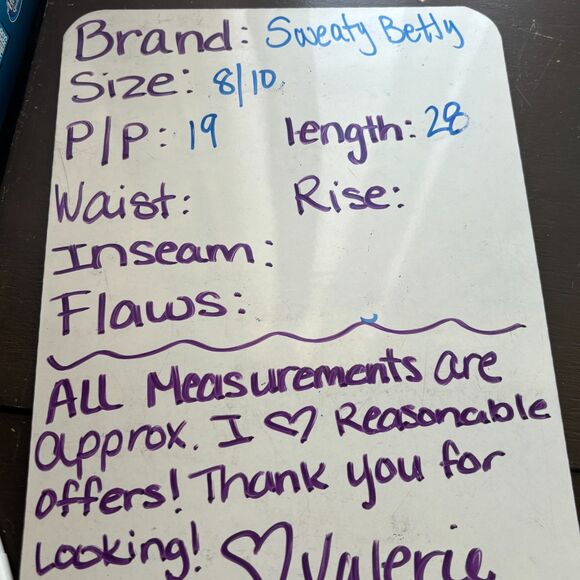 Brand: Sweaty Betty
Size: 8/10
P/P: 19 length: 28
Waist: Rise:
Inseam:
Flaws:
ALL Measurements are
approx. I ♡ Reasonable
offers! Thank you for
Looking! ♡ Valerie